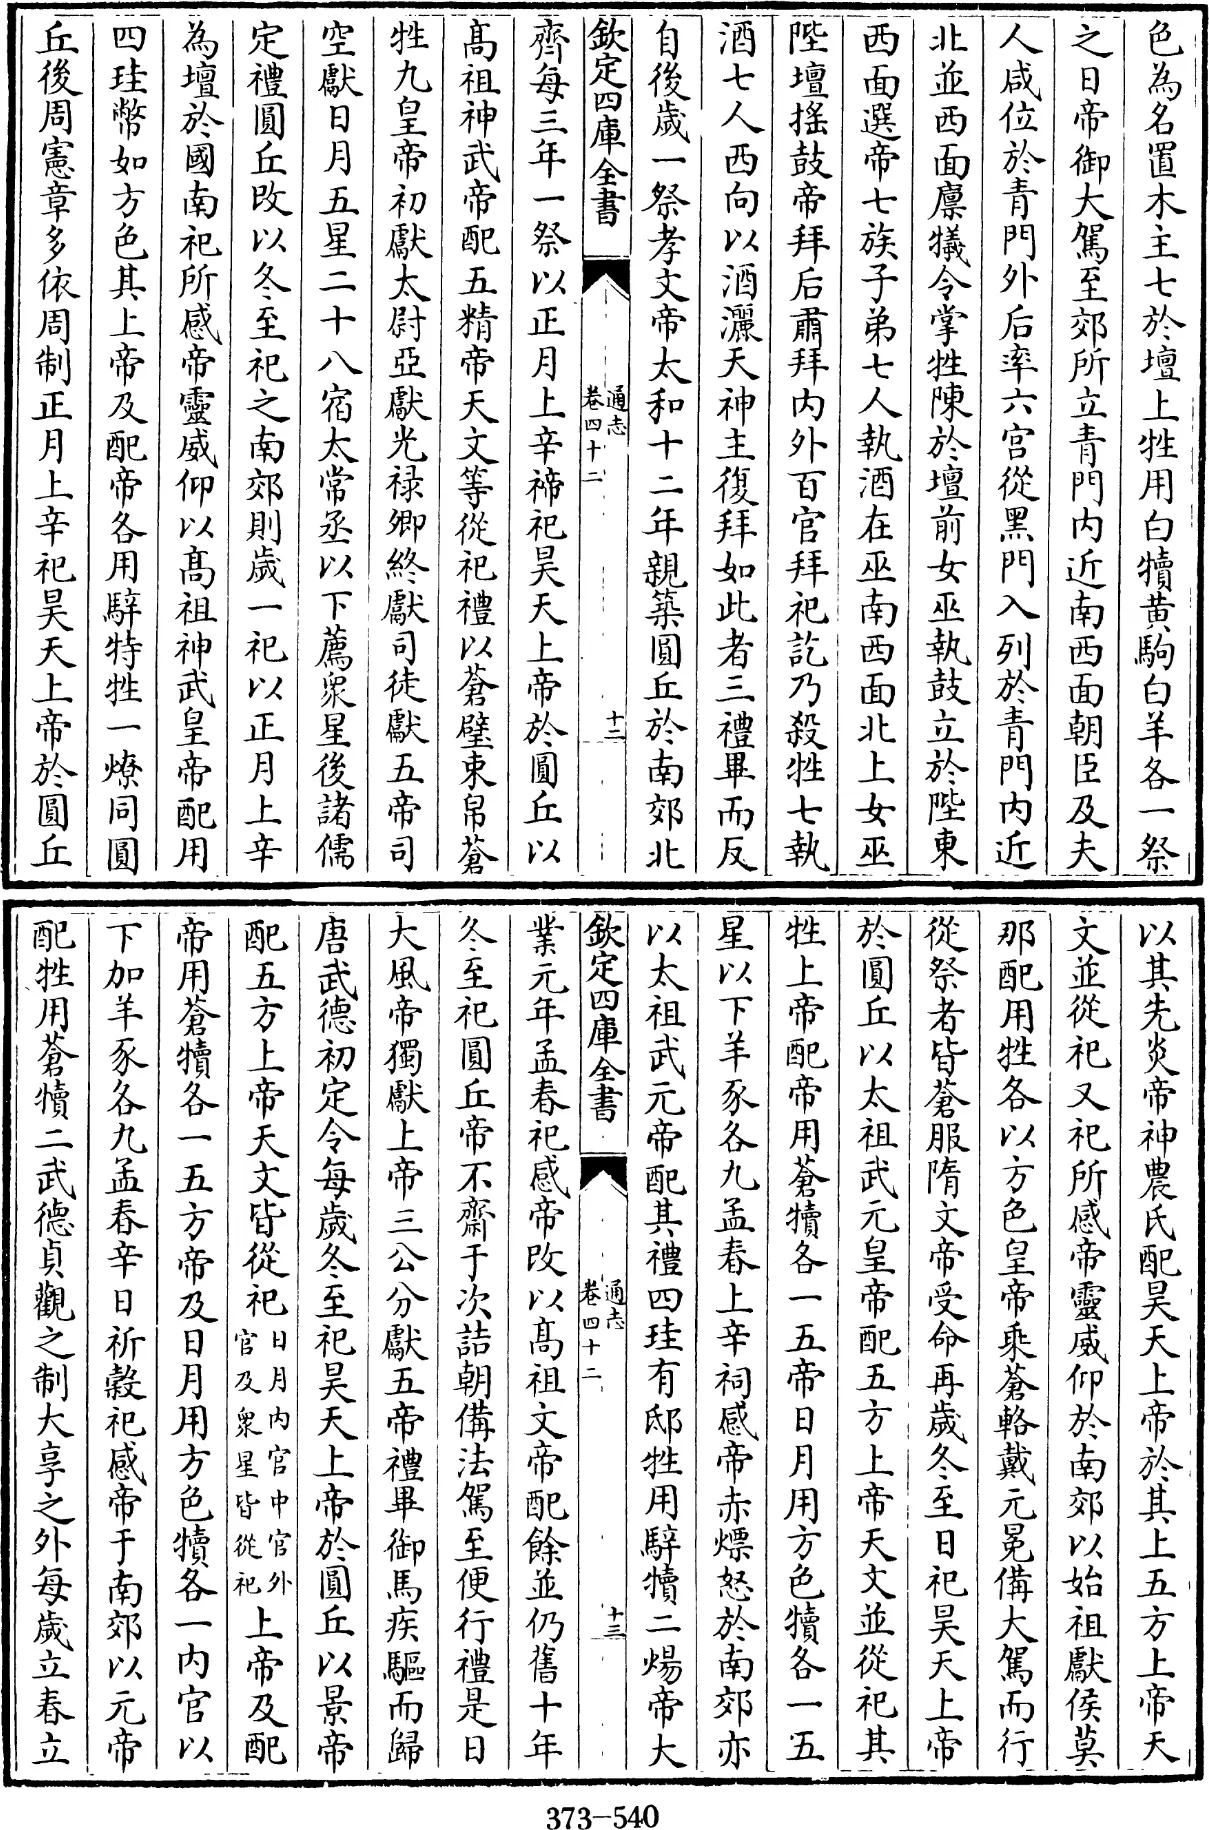 色為名置木主七於壇上牲用白犢黄駒白羊各一祭
之日帝御大駕至郊所立青門内近南西面朝臣及夫
人咸位於青門外后率六宫從黑門入列於青門内近
北並西面廪犧令掌牲陳於壇前女巫執鼓立於陛東
西面選帝七族子弟七人執酒在巫南西面北上女巫
陛壇摇鼓帝拜后肅拜内外百官拜祀訖乃殺牲七執
酒七人西向以酒灑天神主復拜如此者三禮畢而反
自後歲一祭孝文帝太和十二年親築圓丘於南郊北
欽定四庫全書
通志
卷四十二
十二
齊每三年一祭以正月上辛禘祀昊天上帝於圓丘以
髙祖神武帝配五精帝天文等從祀禮以蒼璧束帛蒼
牲九皇帝初獻太尉亞獻光禄卿終獻司徒獻五帝司
空獻日月五星二十八宿太常丞以下薦衆星後諸儒
定禮圓丘改以冬至祀之南郊則歲一祀以正月上辛
為壇於國南祀所感帝靈威仰以髙祖神武皇帝配用
四珪幣如方色其上帝及配帝各用騂特牲一燎同圓
丘後周憲章多依周制正月上辛祀昊天上帝於圓丘
以其先炎帝神農氏配昊天上帝於其上五方上帝天
文並從祀又祀所感帝靈威仰於南郊以始祖獻侯莫
那配用牲各以方色皇帝乘蒼輅戴元冕備大駕而行
從祭者皆蒼服隋文帝受命再歲冬至日祀昊天上帝
於圓丘以太祖武元皇帝配五方上帝天文並從祀其
牲上帝配帝用蒼犢各一五帝日月用方色犢各一五
星以下羊豕各九孟春上辛祠感帝赤熛怒於南郊亦
以太祖武元帝配其禮四珪有邸牲用騂犢二煬帝大
欽定四庫全書
通志
卷四十二
十三
業元年孟春祀感帝改以髙祖文帝配餘並仍舊十年
冬至祀圓丘帝不齋于次詰朝備法駕至便行禮是日
大風帝獨獻上帝三公分獻五帝禮畢御馬疾驅而歸
唐武德初定令每歲冬至祀昊天上帝於圓丘以景帝
配五方上帝天文皆從祀日月内官中官外官及衆星皆從祀上帝及配
帝用蒼犢各一五方帝及日月用方色犢各一内官以
下加羊豕各九孟春辛日祈穀祀感帝于南郊以元帝
配牲用蒼犢二武德貞觀之制大享之外每歲立春立
373-540